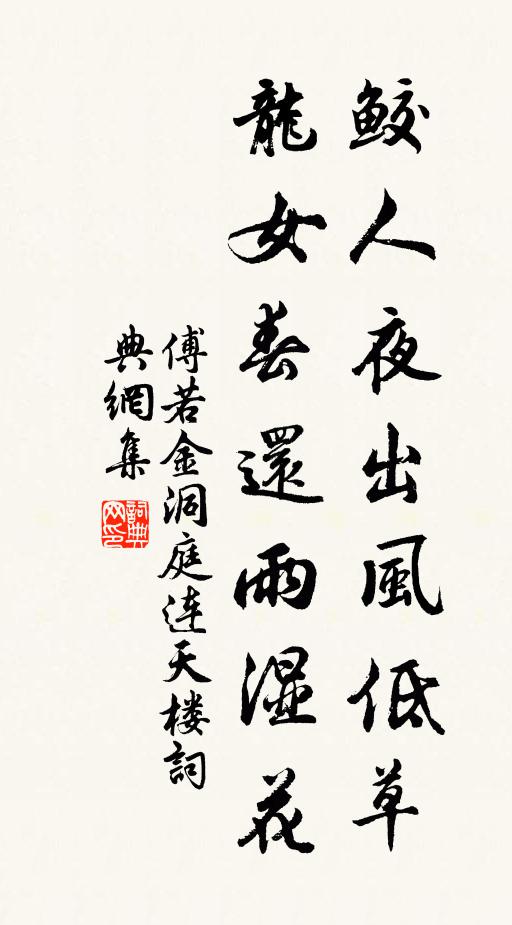 鲛人夜出風低草
龍女春還雨湿花
傅若金洞庭连天楼詞
典網集
詞典网印